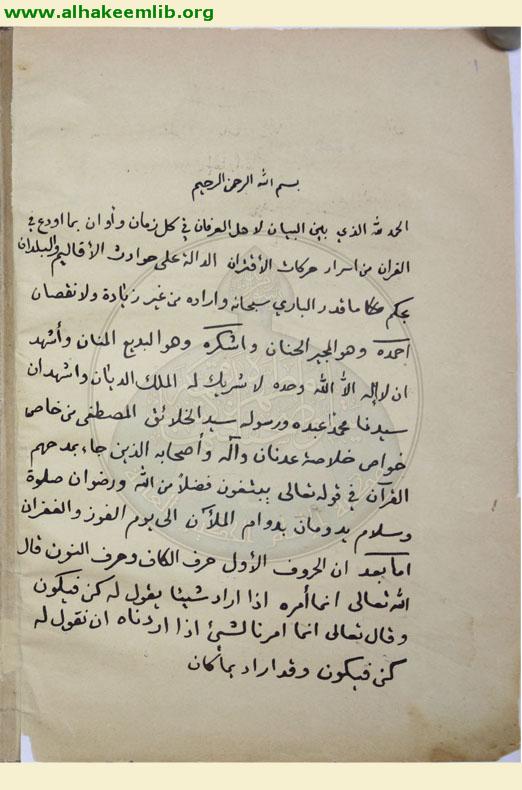 www.alhakeemlib.org
بسم الله الرحمن الرحيم
الحمد لله الذي بين البيان لاهل العرفان في كل زمان وأوان بما اودع في
القران من اسرار حركات الأقتران الدالة على حوادث الأقاليم والبلدان
بحكم ما قدر الباري سبحانه واراده من غير زيادة ولا نقصان
احمده وهو المجير الحنان واشكره وهو البديع المنان وأشهد
ان لا إله الا الله وحده لا شريك له الملك الديان واشهد ان
سيدنا محمد عبده ورسوله سيد الخلائق المصطفى من خاصة
خواص خلاصة عدنان وآله وأصحابه الذين جاء بمدحهم
القرآن في قوله تعالى يبتغون فضلاً من الله ورضوان صلوة
وسلام يدومان بدوام الملأن الى يوم الفوز والغفران
اما بعد ان الحروف الأول حرف الكاف وحرف النون قال
الله تعالى انما أمره اذا اراد شيئا يقول له كن فيكون
وقال تعالى انما امرنا لشئ اذا اردناه ان نقول له
كن فيكون وقد اراد بما كان